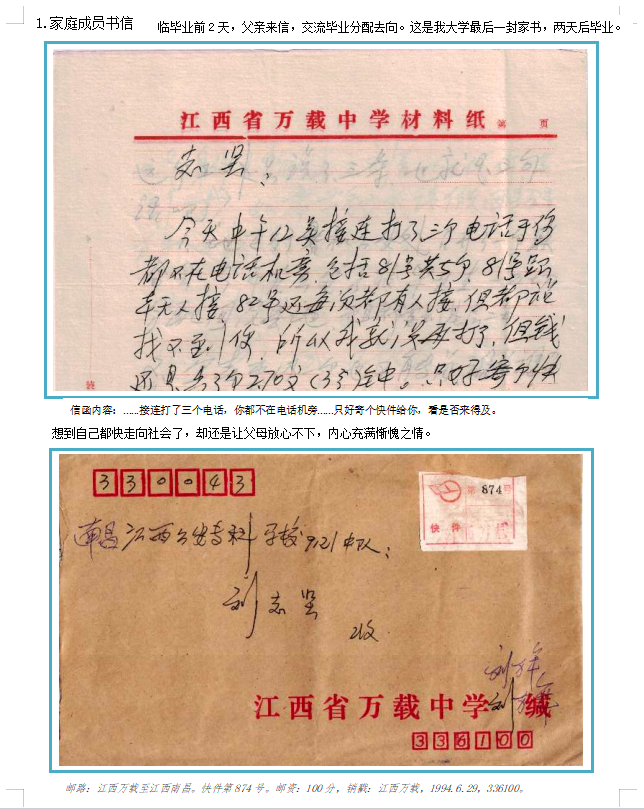 1.家庭成员书信
临毕业前2天，父亲来信，交流毕业分配去向。这是我大学最后一封家书，两天后毕业。
江西省万载中学材料纸 第 页
志坚：
今天中午12点接连打了三个电话于你
都不在电话机旁，包括81号共5个，81号
无人接，82号还每次都有人接，但都说
找不到你，所以我就没再打了，但钱
还是去了个270文(3个)
只好寄个快
信函内容：……接连打了三个电话，你都不在电话机旁……只好寄个快件给你，看是否来得及。
想到自己都快走向社会了，却还是让父母放心不下，内心充满惭愧之情。
330043
第 874 号
快件
南昌江西公安专科学校9121中队：
刘志坚
收
江西省万载中学 缄
336100
邮路：江西万载至江西南昌。快件第874号。邮资：100分，销戳：江西万载，1994.6.29，336100。